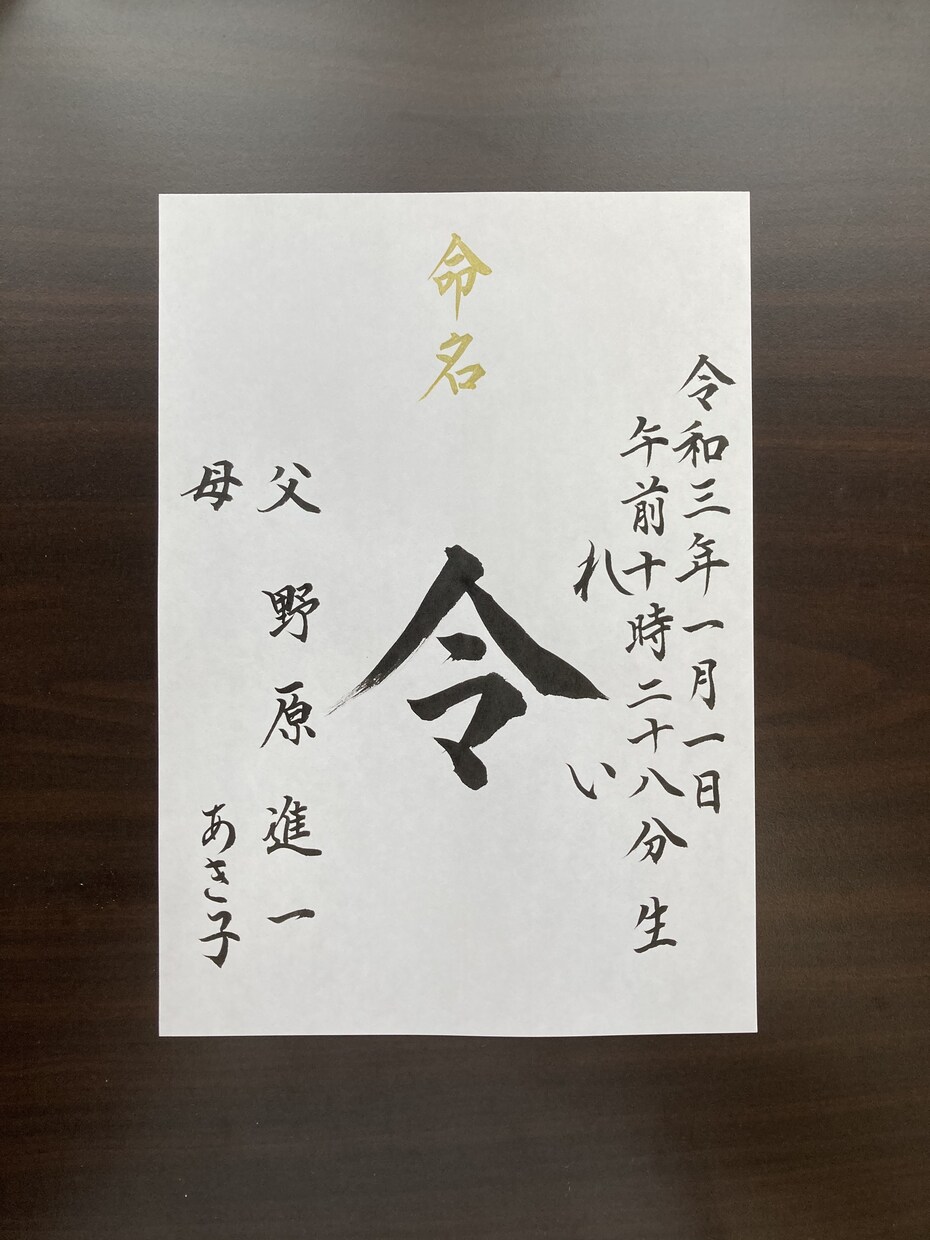 命名
令和三年一月一日
午前十時二十八分生
れい
令
父 野原 進一
母 あき子